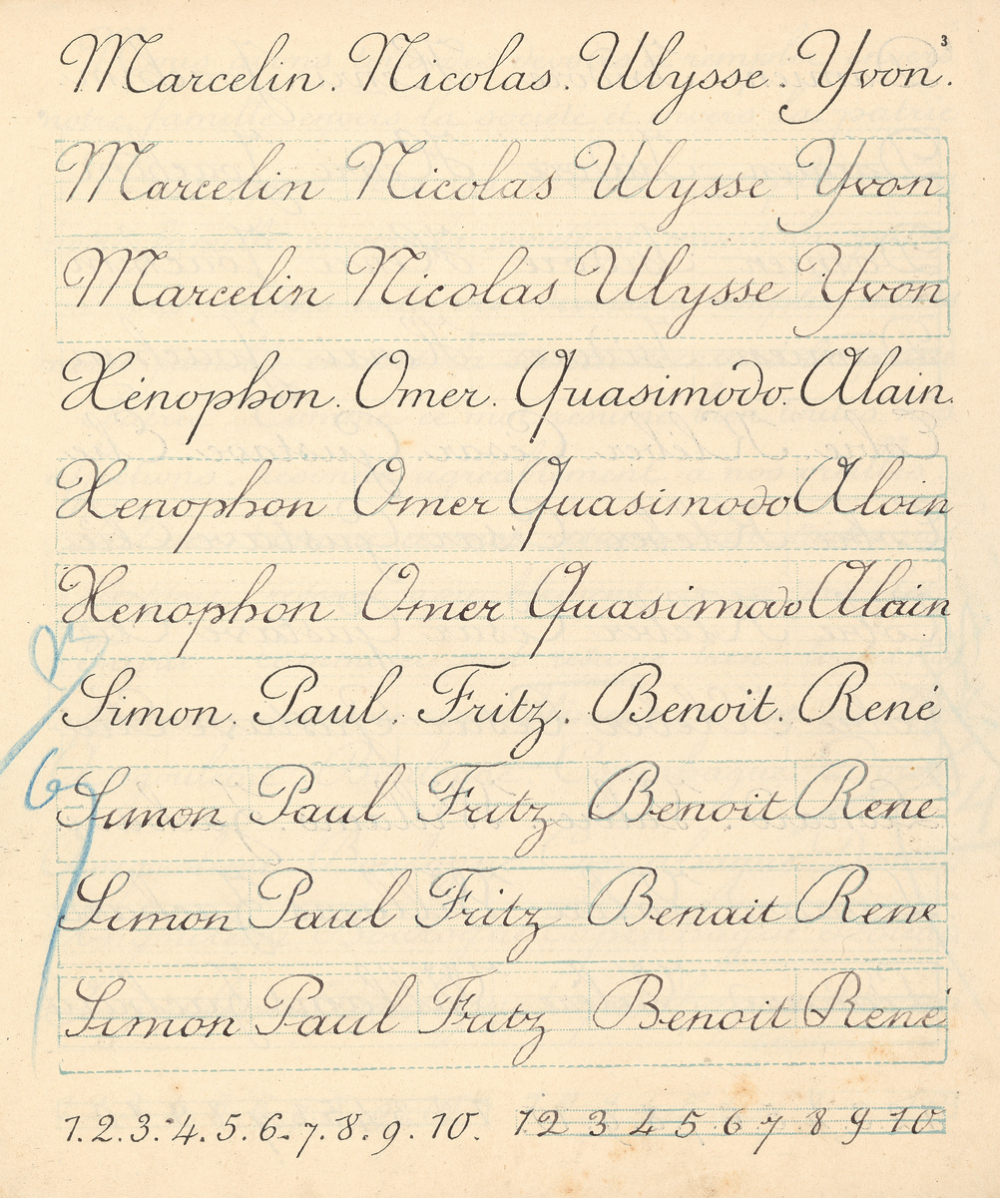 3
Marcelin. Nicolas. Ulysse. Yvon.
Marcelin Nicolas Ulysse Yvon
Marcelin Nicolas Ulysse Yvon
Xénophon. Omer. Quasimodo. Alain.
Xenophon Omer Quasimodo Aloin
Xenophon Omer Quasimodo Alain
Simon. Paul. Fritz. Benoit. René
Simon Paul Fritz Benoit René
Simon Paul Fritz Benait René
Simon Paul Fritz Benoit René
1. 2. 3. 4. 5. 6. 7. 8. 9. 10. 1 2 3 4 5 6 7 8 9 10